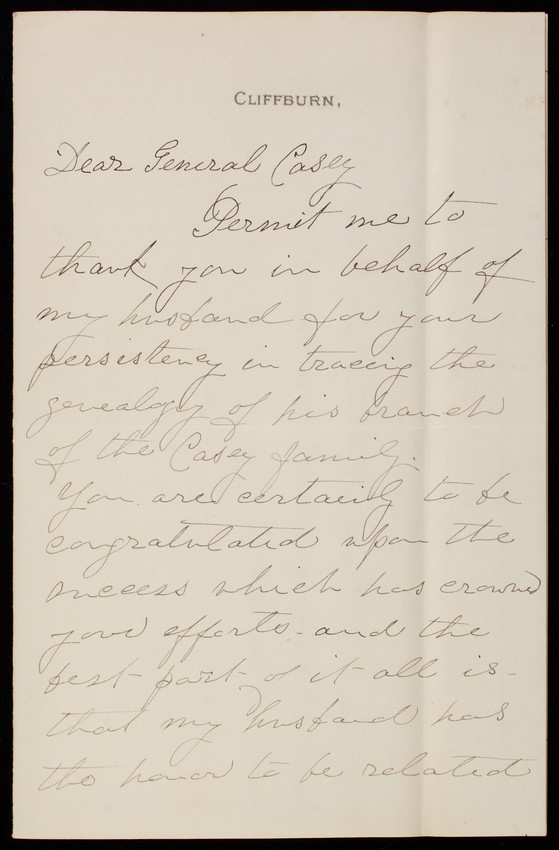 CLIFFBURN,
Dear General Casey
Permit me to
thank you in behalf of
my husband for your
persistency in tracing the
genealogy of his branch
of the Casey family.
You are certainly to be
congratulated upon the
success which has crowned
your efforts - and the
best part of it all is -
that my husband has
the honor to be related